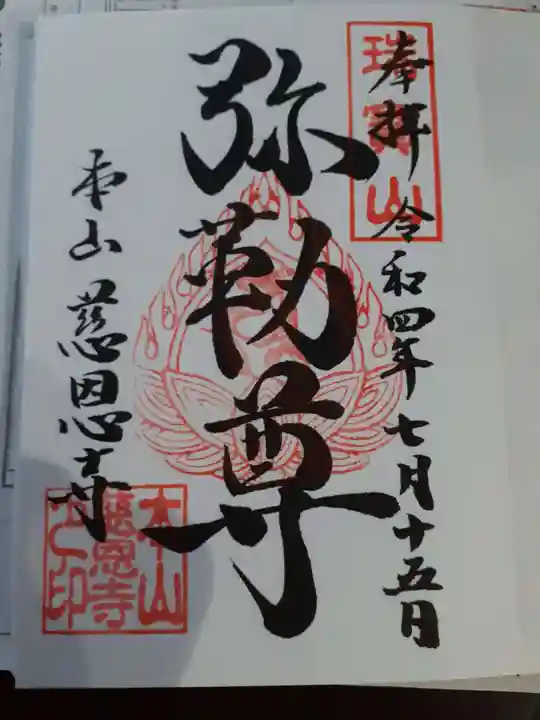 奉拝 令和四年七月十五日
瑞寳山
弥勒尊
本山 慈恩寺
本山慈恩寺之印